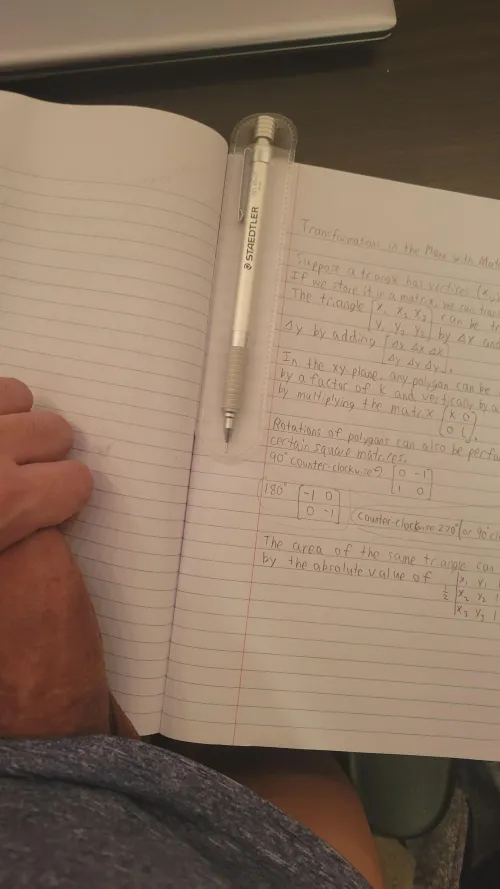 STAEDTLER
Transformations in the Plane with
Suppose a triangle has vertices (x,
If we store it in a matrix, we can
The triangle [x₁ x₂ x₃ can be
y₁ y₂ y₃] by Δx and
Δy by adding [Δx Δx Δx
Δy Δy Δy].
In the xy plane, any polygon can be
by a factor of k and vertically by a
by multiplying the matrix [k 0
0
Rotations of polygons can also be
certain square matrices.
90° counter-clockwise [0 -1
1 0]
180° [-1 0
0 -1] Counter-clockwise 270° (or 90°
The area of the same triangle can
by the absolute value of ½ |x₁ y₁
x₂ y₂ 1
x₃ y₃ 1